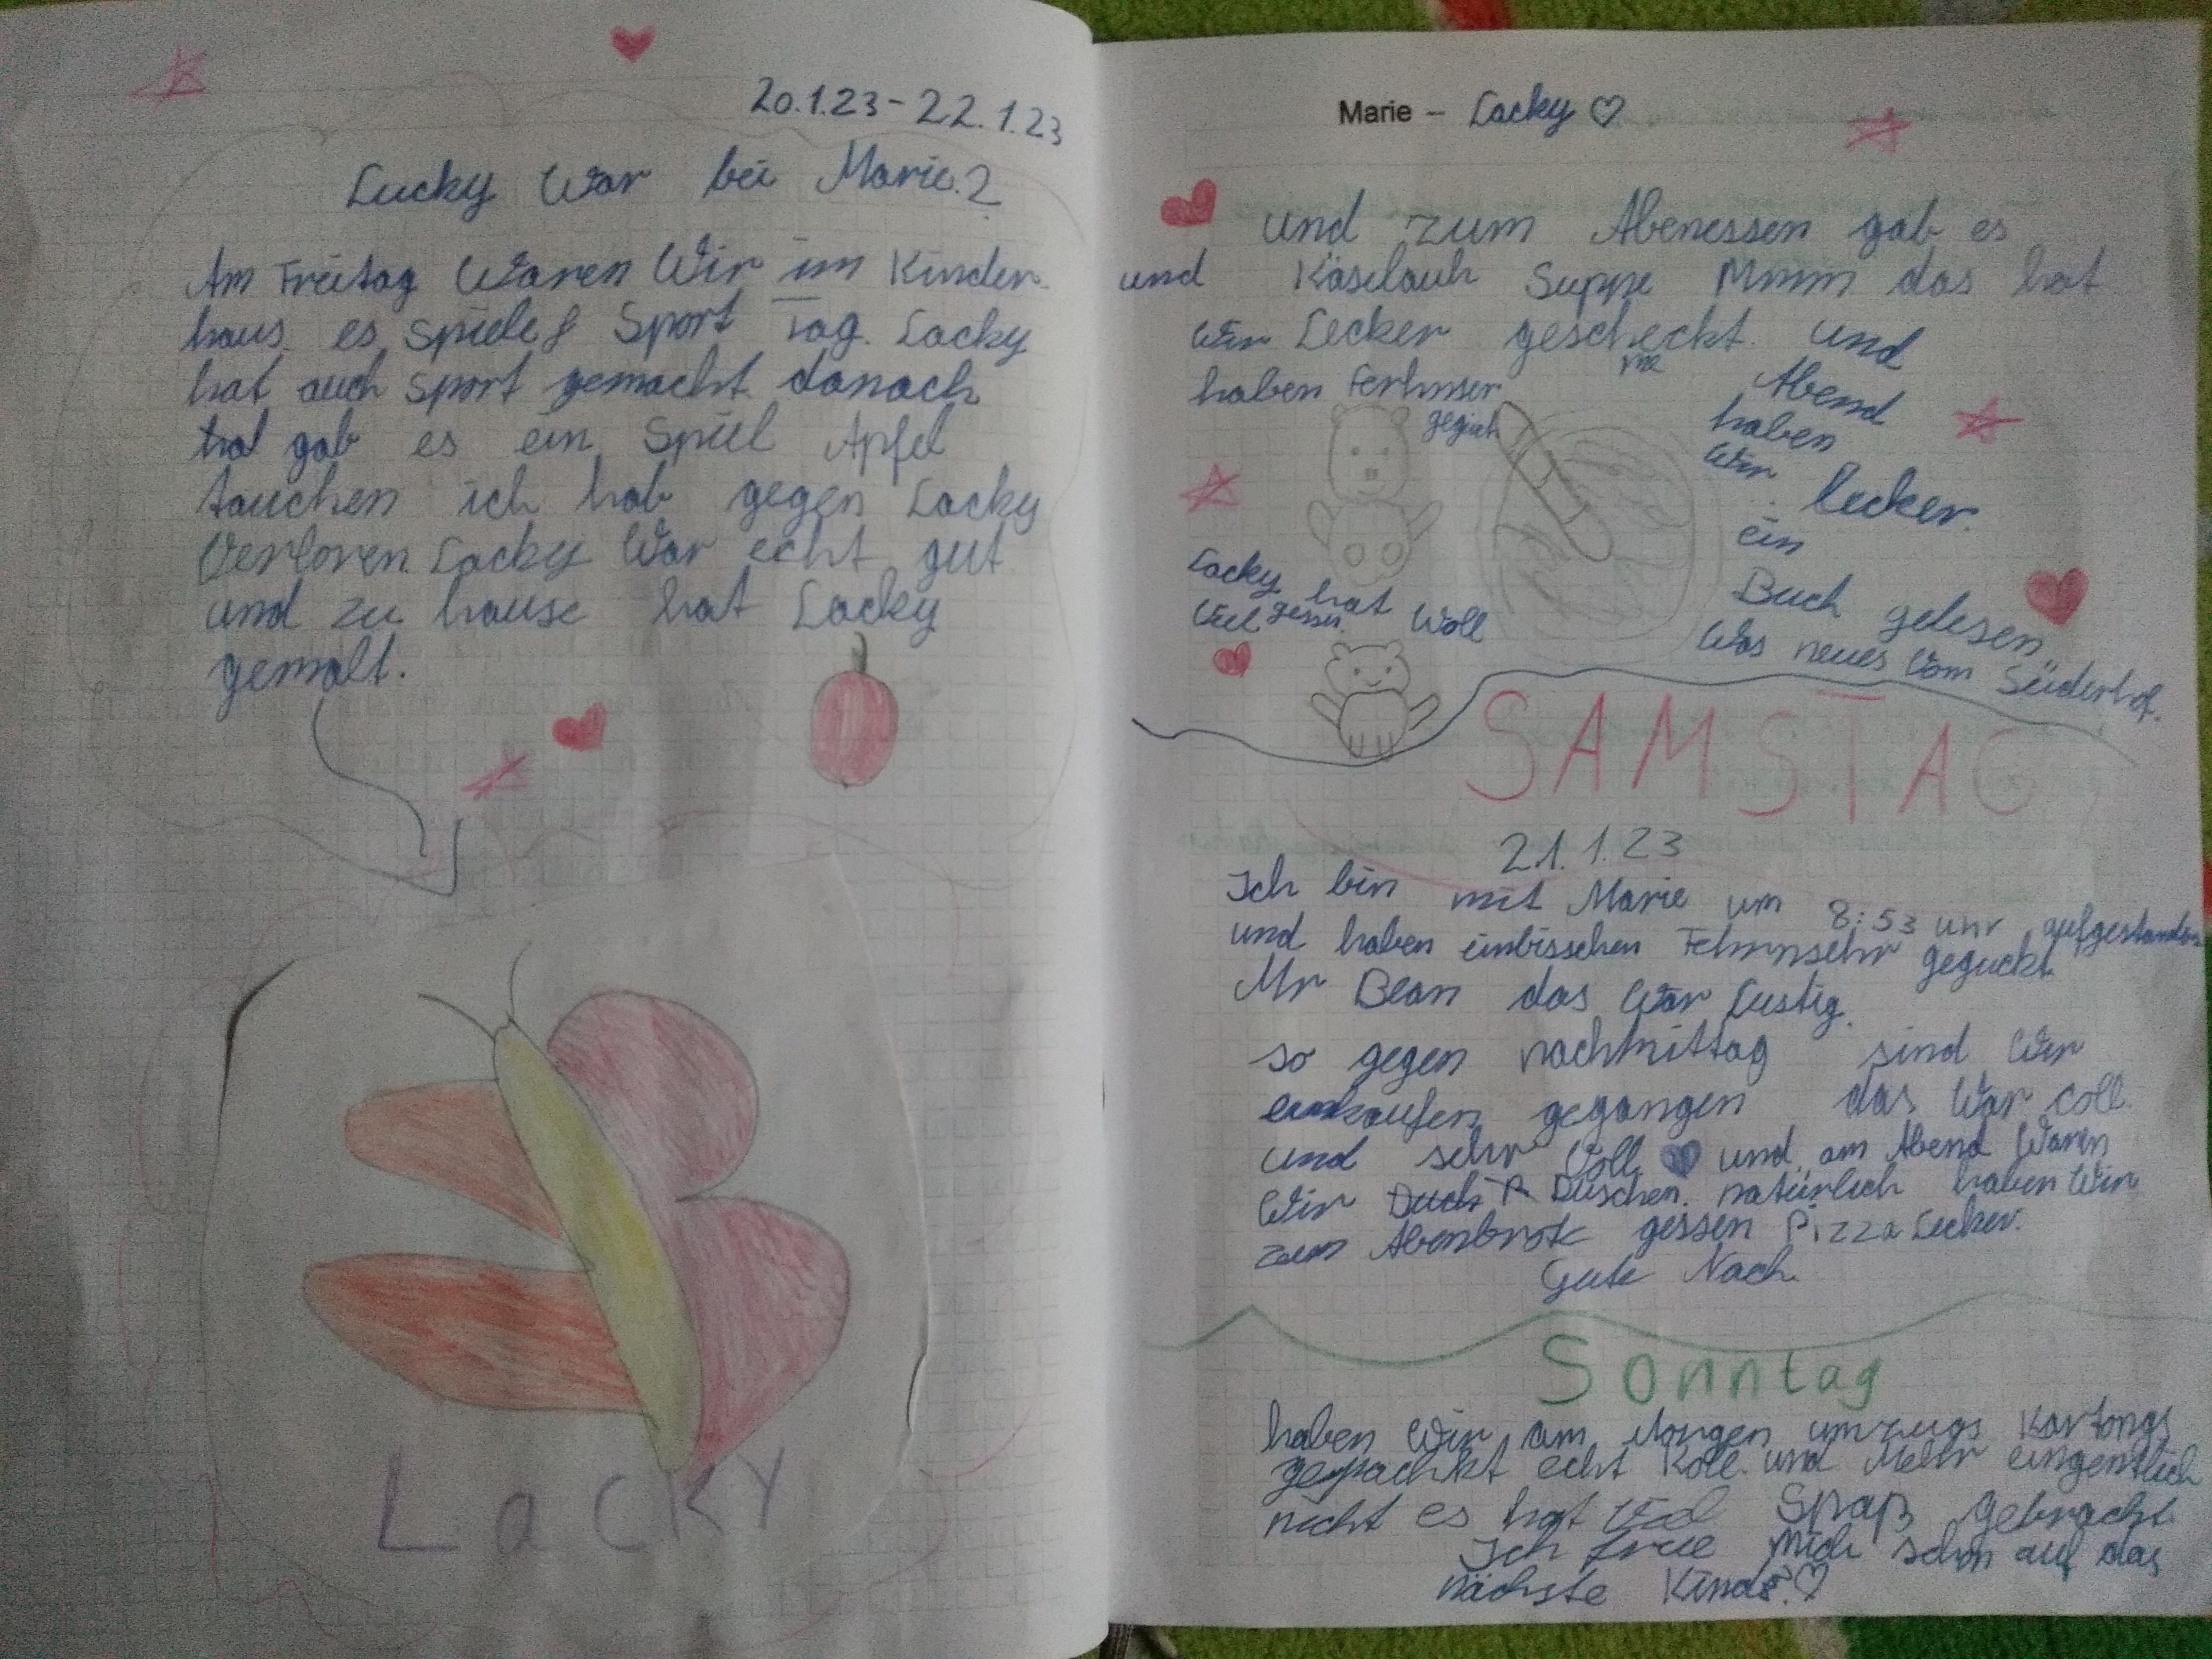 20.1.23 - 22.1.23
Lucky war bei Marie.2
Am Freitag Waren Wir im Kinder
haus es spiele & Sport Tag. Lacky
hat auch sport gemacht danach
gab es ein Spiel Apfel
tauchen ich hab gegen Lacky
Verloren Lacky War echt gut
und zu hause hat Lacky
gemalt.
LacKY
Marie - Lacky ♡
und zum Abenessen gab es
und Käselauh Suppe Mmm das hat
wir Lecker gescheckt und
haben Ferhnser
geguct
Abend
haben
Wir
lecker.
ein
Buch gelesen
Was neues Vom Süderhof.
Lacky hat
Viel gessen Woll
SAMSTAG
21.1.23
Ich bin mit Marie um 8:53 unr aufgestanden
und haben einbisschen Fehrnsehr geguckt
Mr Bean das War Lustig.
so gegen nachmittag sind Wir
einkaufen gegangen das War coll
und sehr Voll und am Abend Waren
Wir Duschen. natürlich haben Wir
zum Abenbrot gessen Pizza Lecker.
Gute Nach
Sonntag
haben Wir am Morgen umzugs Kartongs
gepachkt echt Koll. und Mehr eingentlich
nicht es hat Viel Spaß gebracht
Ich freue Mich schon auf das
nächste Kind.♡